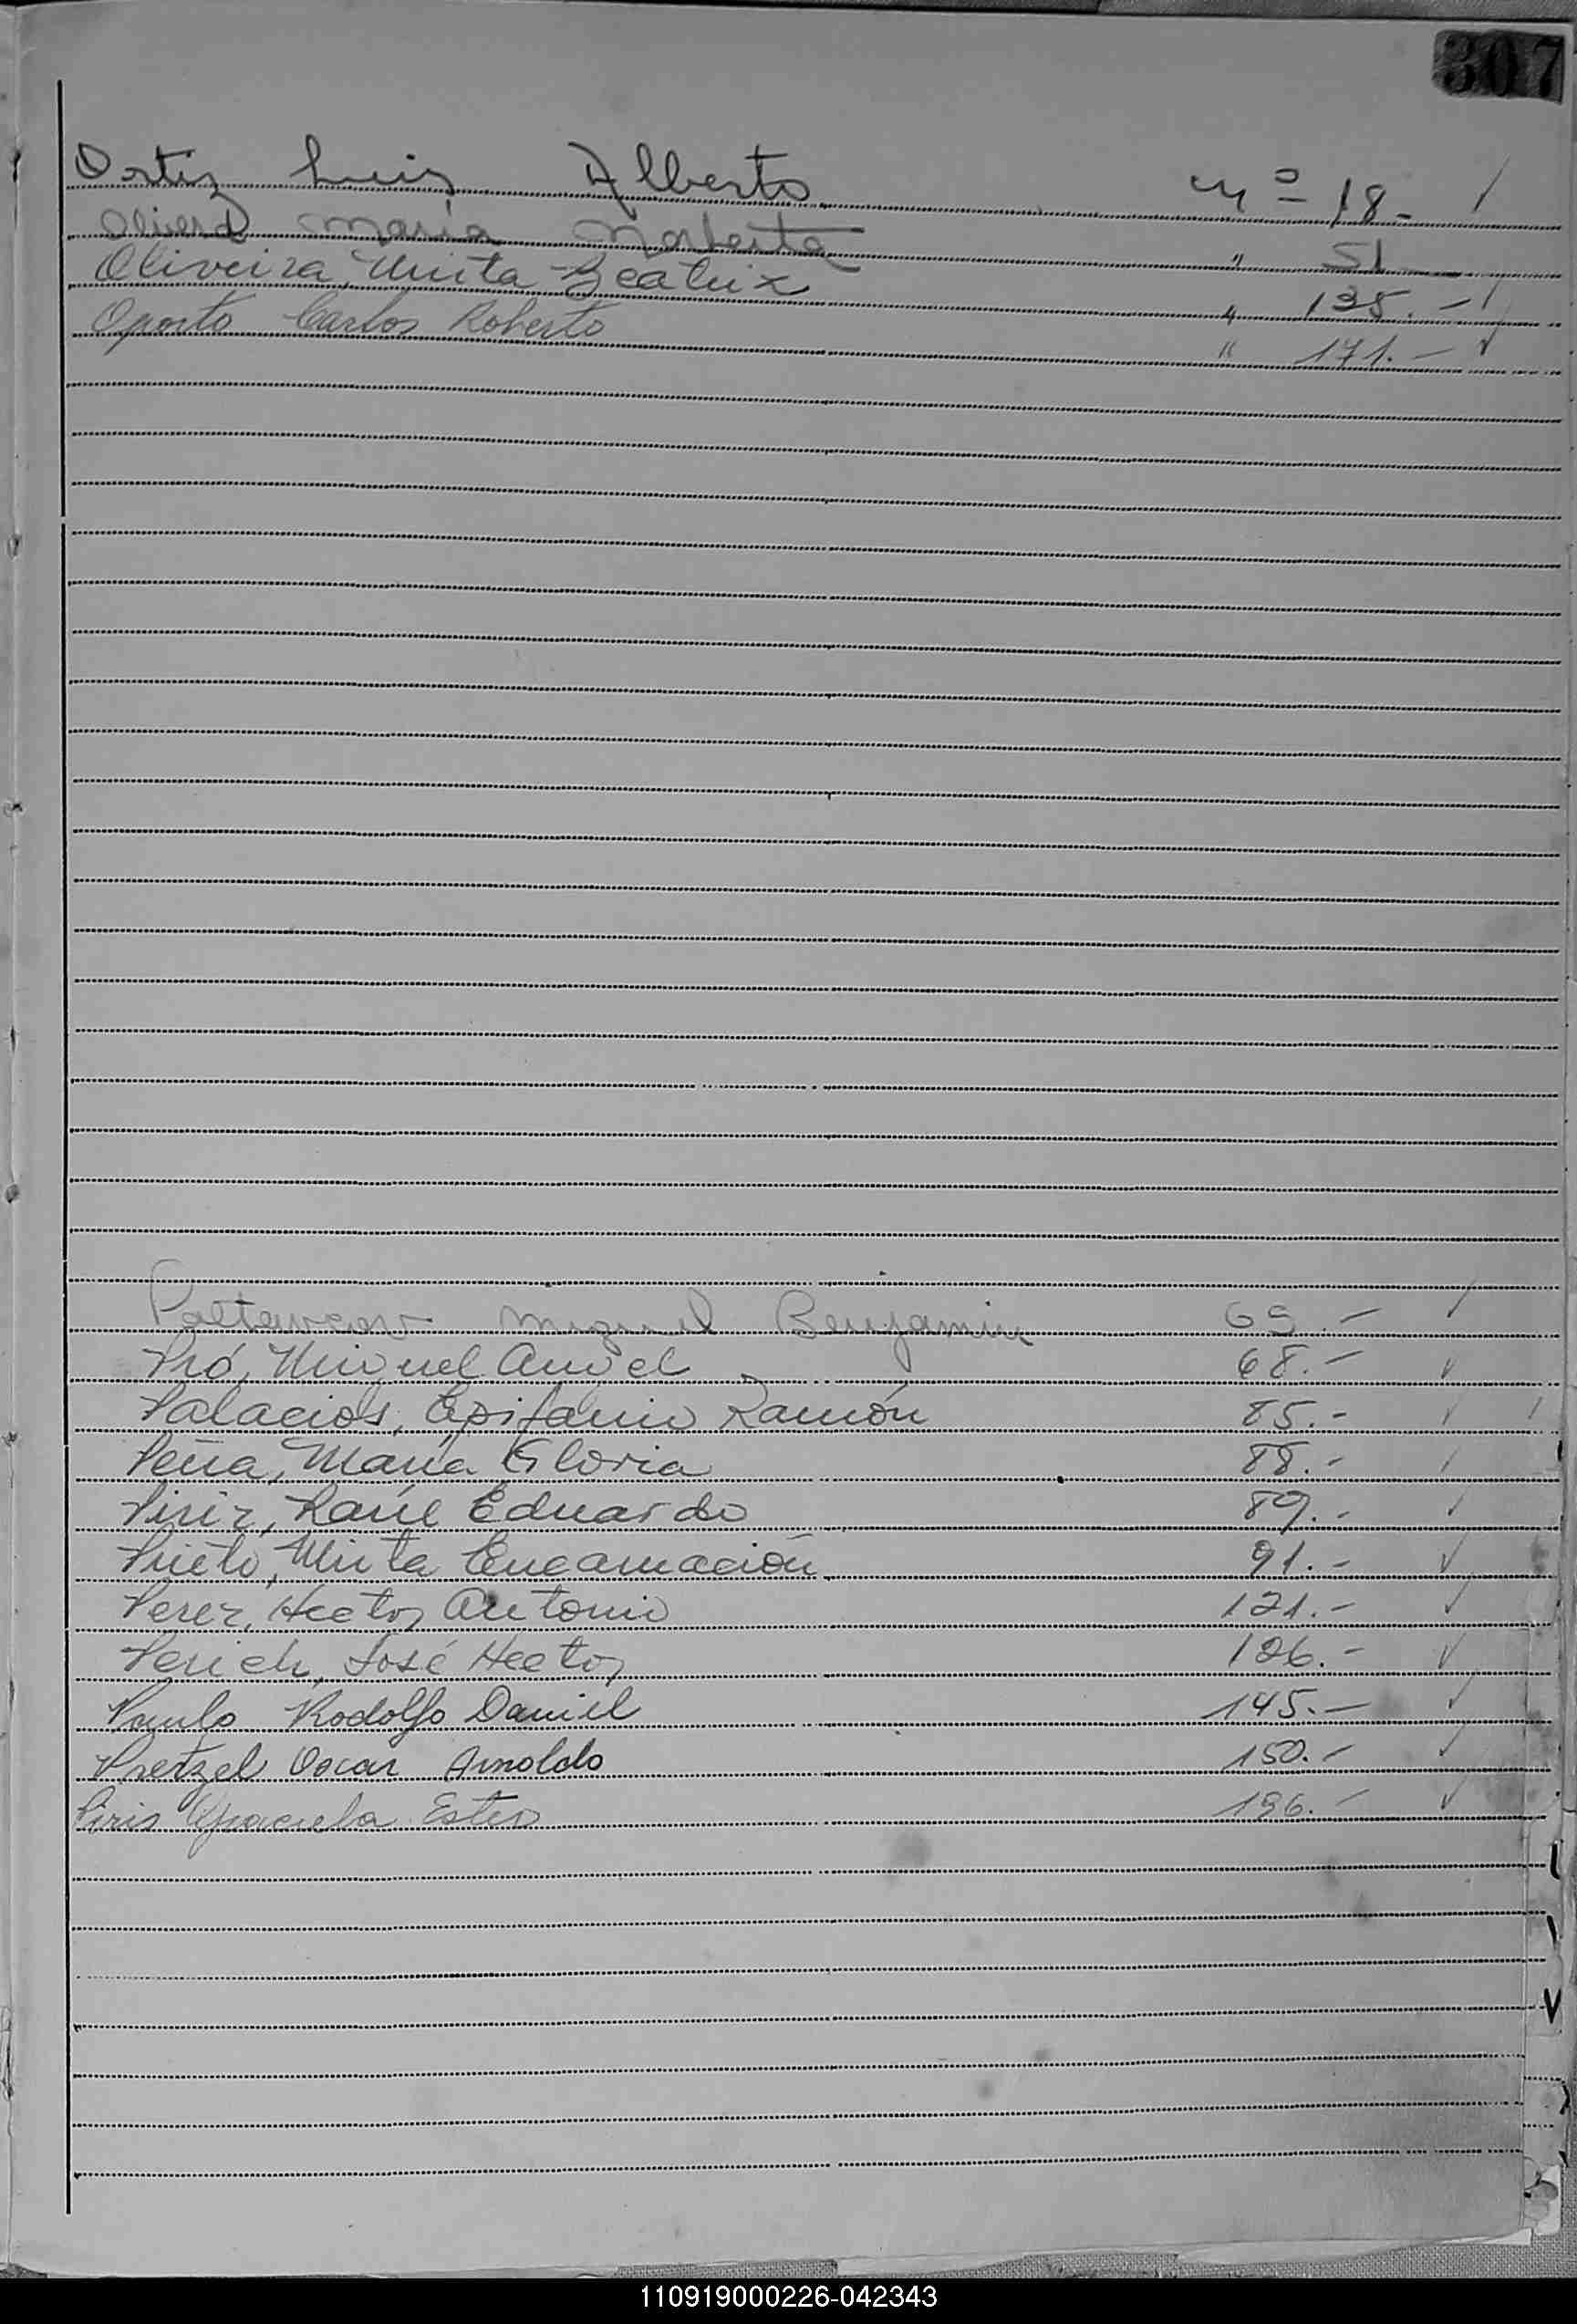 307
Ortiz Luis Alberto nº 18-
Oliverá María Norberta " 51 —
Oliveira, Mirta Beatriz " 135.-
Oporto Carlos Roberto " 171.-
Miguel Benjamin 69.-
Pró, Miguel Angel 68.-
Palacios, Epifanio Ramón 85.-
Peña, María Gloria 88.-
Piriz, Raúl Eduardo 89.-
Prieto, Mirta Encarnación 91.-
Perez, Hector Antonio 121.-
Perich, José Hector 126.-
Paulo Rodolfo Daniel 145.-
Pretzel Oscar Arnoldo 150.-
Piris Graciela Ester 196.-
110919000226-042343